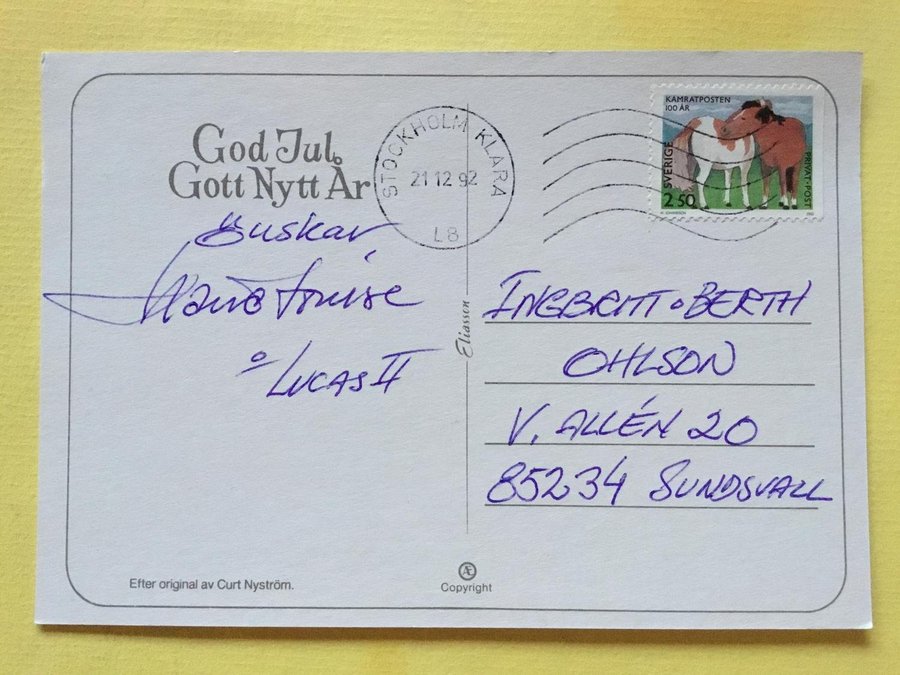 God Jul
Gott Nytt År
önskar
Marie Louise
o Lucas II
STOCKHOLM KLARA
21 12 92
L8
KAMRATPOSTEN
100 ÅR
SVERIGE
2.50
PRIVAT·POST
Eliasson
INGBRITT o BERTH
OHLSON
V. ALLÉN 20
85234 SUNDSVALL
Efter original av Curt Nyström.
Æ
Copyright